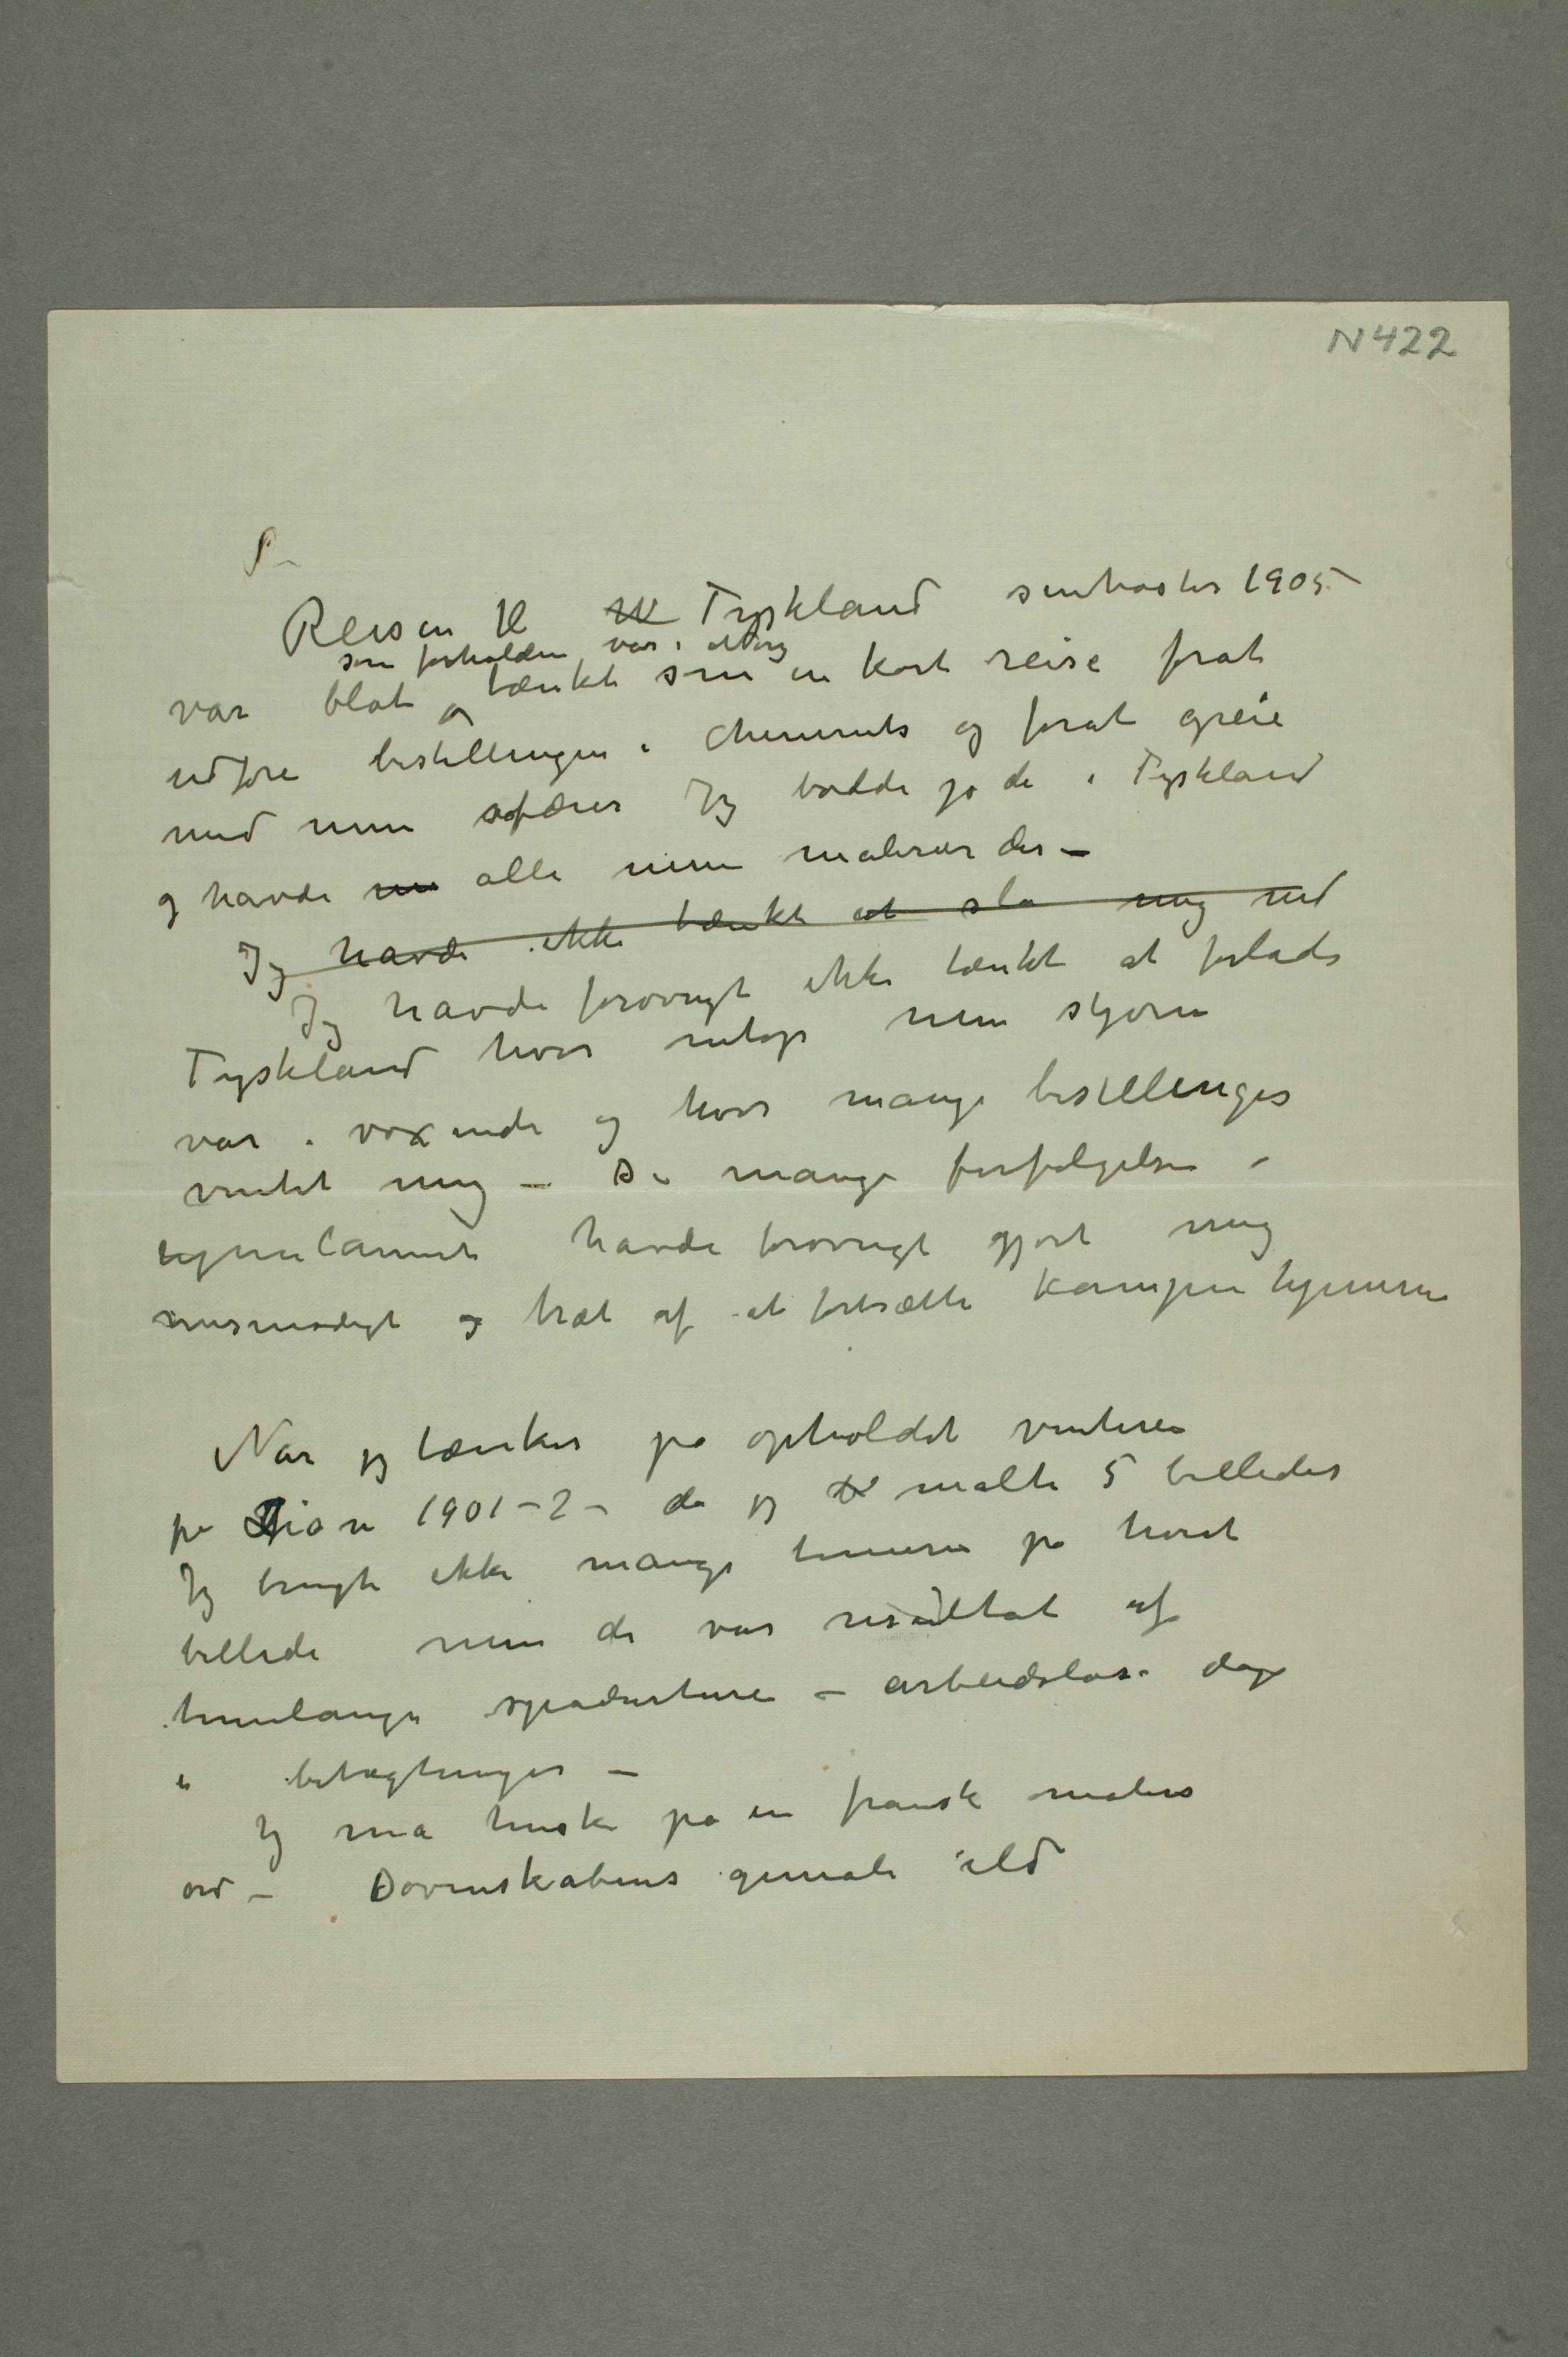 N 422
P –
Reisen til Tyskland senhøsten 1905 –
som forholdene var i Norge
var blot tænkt som en kort reise forat
udføre bestillingen i Chemnits og forat greie
med mine afærer Jeg bodde jo da i Tyskland
og havde alle mine malerier der –
Jeg havde ikke tænkt at slå mig ned
Jeg havde forøvrigt ikke tænkt at forlade
Tyskland hvor netop min stjerne
var i voxende og hvor mange bestillinger
ventet mig – De mange forfølgelser i
hjemlannet havde forøvrigt gjort mig
mismodigt og træt af at fortsætte kampen hjemme
Når jeg tænker på opholdet vinteren
på 1901-2 – da jeg malte 5 billeder
Jeg brugte ikke mange timerne på hvert
billede men de var resultat af
timelange spadserture – arbeidsløse dage
i betragtninger –
Jeg må huske på en fransk malers
ord – Dovenskabens geniale ild